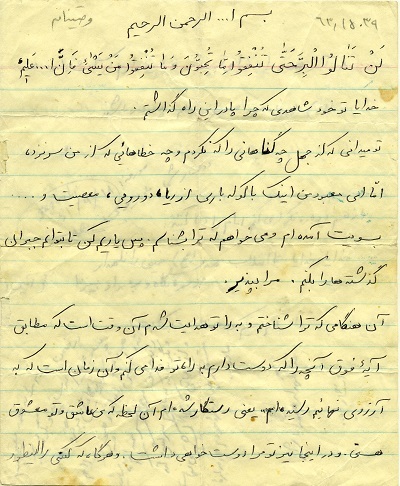 بسم ا... الرحمن الرحیم
وصیتنامه
لَنْ تَنالُوا الْبِرَّ حَتَّی تُنْفِقُوا مِمَّا تُحِبُّونَ وَ مَا تُنْفِقُوا مِنْ شَیْئٍ فَاِنَّ ا... عَلیمٌ
خدایا تو خود شاهدی که چرا پا در این راه گذاشتم.
تو میدانی که از جهل چه گناهانی را که نکردم و چه خطاهائی که از من سر نزد،
امّا الهی معبود من اینک با کوله باری از ریا، دورویی، معصیت و ....
بسویت آمده ام و می خواهم که ترا بشناسم. پس یاریم کن تا بتوانم جبران
گذشته ها را بکنم. مرا بپذیر.
آن هنگامی که ترا شناختم و به راه تو هدایت شدم آن وقت است که مطابق
آیۀ فوق آنچه را که دوست دارم به راه تو فدا می کنم و آن زمان است که به
آرزوی نهائیم رسیده ام، یعنی رستگار شده ام آن لحظه که من عاشق و تو معشوق
هستی. و در اینجا نیز تو مرا دوست خواهی داشت. و هرگاه که کسی را اینطور